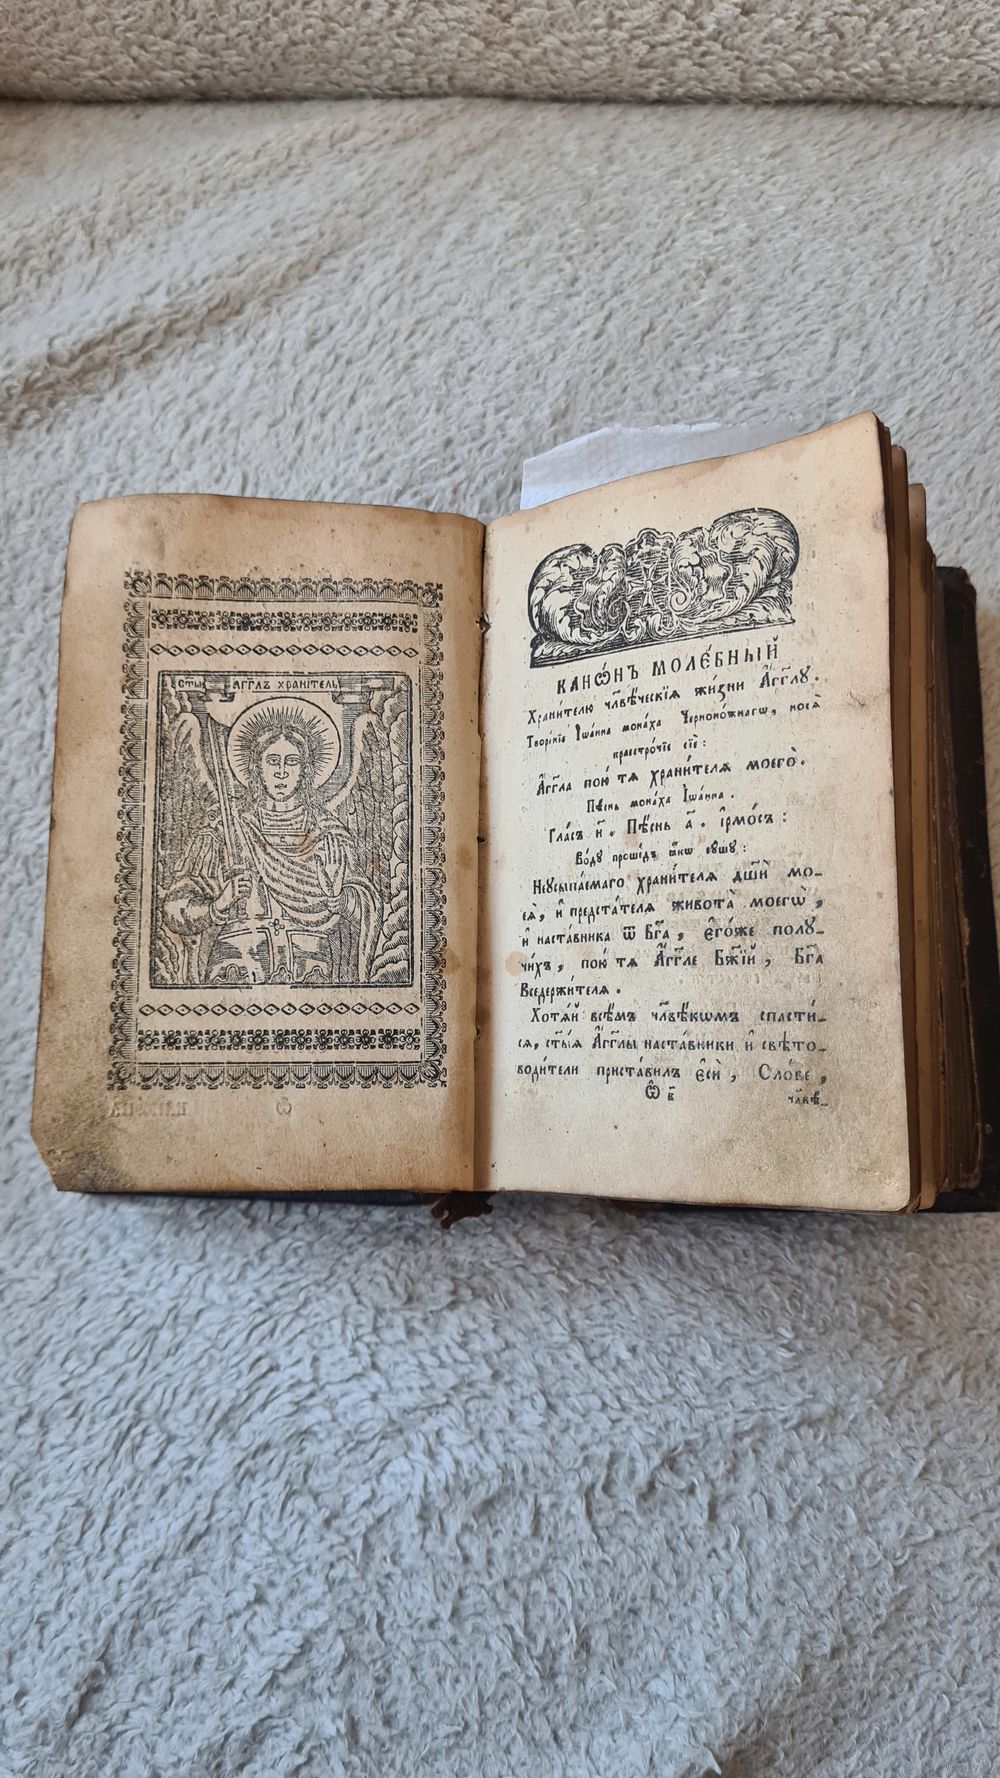 СТЫ АГГЛЪ ХРАНІТЕЛЬ
Ѿ
КАНѠ́НЪ МОЛЕ́БНЫЙ
Храни́телю чл҃вѣ́ческїѧ жи́зни А҆́гг҃лу.
Творе́нїе І҆ѡа́нна мона́ха Черноно́жнагѡ, носѧ̀
краестро́чїе сїѐ:
А҆́гг҃ла пою́ тѧ храни́телѧ моего̀.
Пѣ́снь мона́ха І҆ѡа́нна.
Гла́съ и҃. Пѣ́снь а҃. і҆рмо́съ:
Во́ду проше́дъ ꙗ҆́кѡ сꙋ́шꙋ:
Неусыпа́емаго храни́телѧ дш҃и́ мо-
еѧ̀, и҆ предста́телѧ живота̀ моегѡ̀,
и҆ наста́вника ѿ Бг҃а, є҆го́же полу-
чи́хъ, пою́ тѧ А҆́гг҃ле Бж҃їй, Бг҃а
Вседержи́телѧ.
Хотѧ́й всѣ́мъ чл҃вѣ́кѡмъ спасти́-
сѧ, ст҃ы́ѧ А҆́гг҃лы наста́вники и҆ свѣто-
води́тели приста́вилъ є҆сѝ, Сло́ве,
Ѿ в҃
чл҃вѣ-